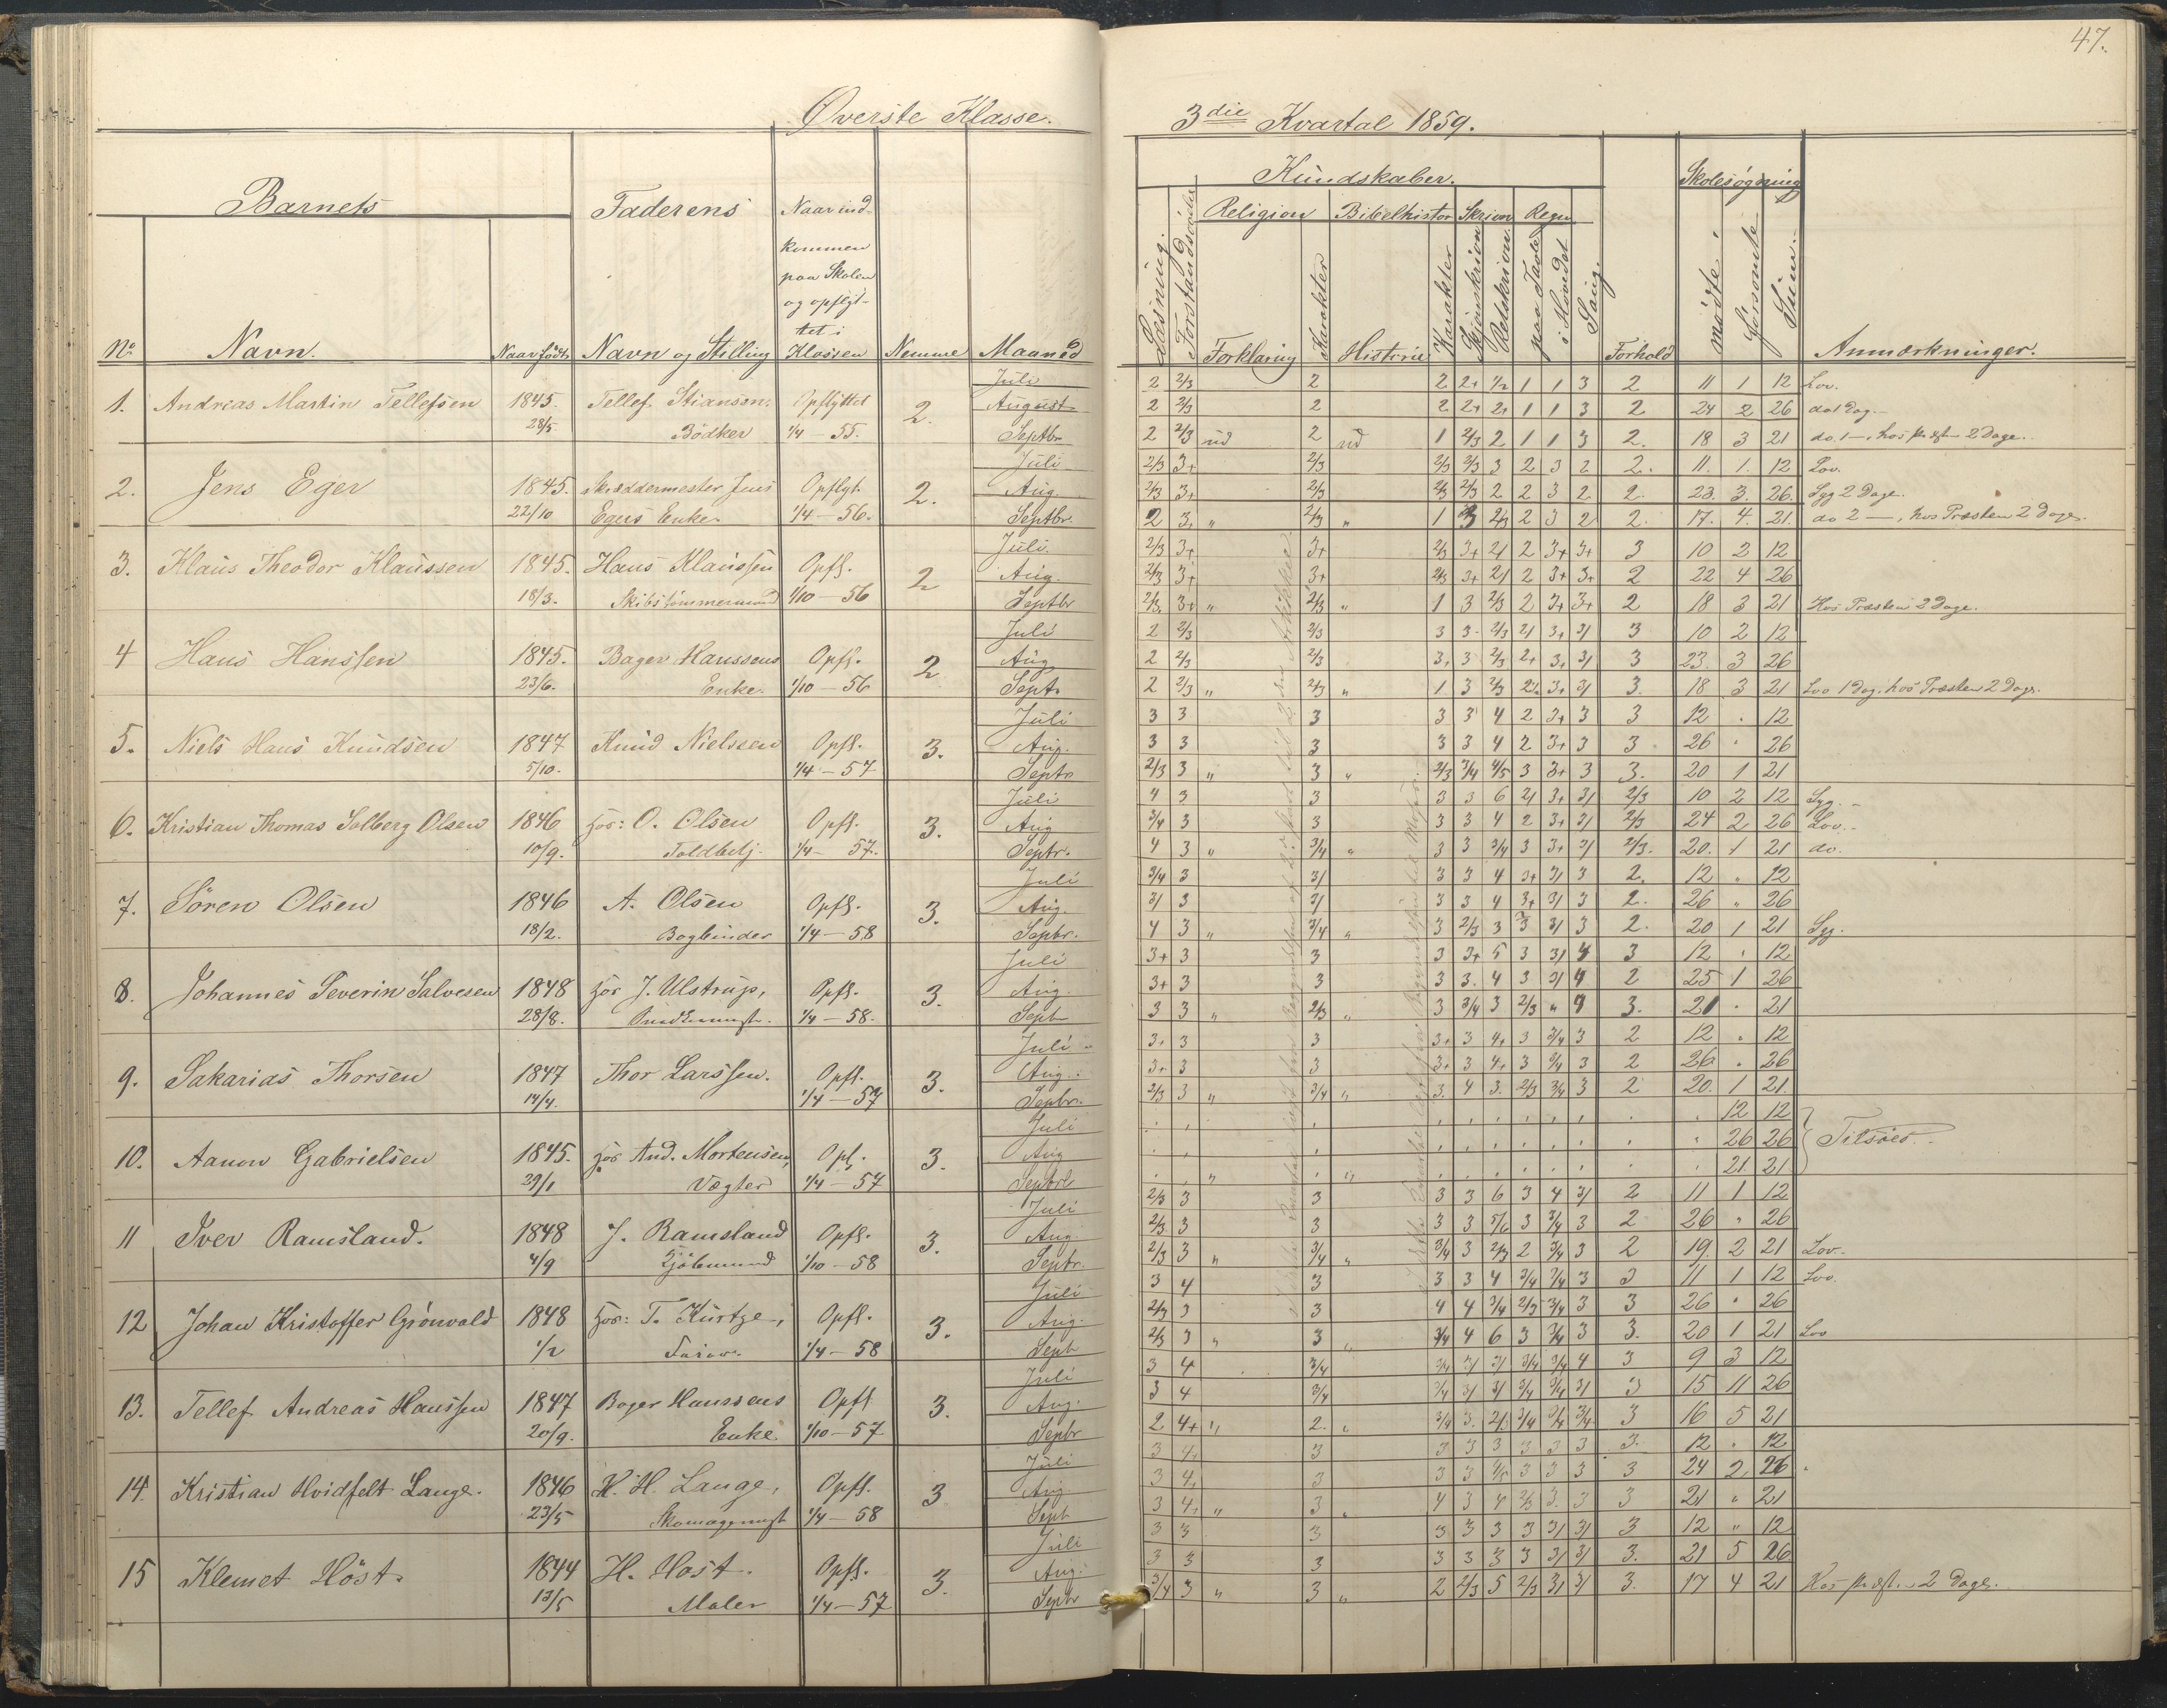 47.
Øverste Klasse.
3die Kvartal 1859.
Barnets
Faderens
Naar ind-
kommen
paa Skolen
og opflyt-
tet i
Klassen
No Navn. Naar født. Navn og Stilling Nemme Maaned
Kundskaber.
Skolesøgning
Religion Bibelhistor Skrivn Regn
Læsning. Forstandsøvelse Forklaring Karakter Historie Karakter Retskrivn. paa Tavle i Hovedet Sang. Forhold mødte forsømte Sum. Anmærkninger.
Juli 2 2/3 2 2 2+ 1/2 1 1 3 2 11 1 12 Lov.
1. Andreas Martin Tellefsen 1845. Tellef Stiansen. Opflyttet 2. August 2 2/3 2 2 2+ 2+ 1 1 3 2 24 2 26 do 1 dag.
28/5. Bødker 1/4 – 55. Septbr 2 2/3 ud 2 ud 1 2/3 2 1 1 3 2. 18 3 21
Juli 2/3 3+ 2/3 2/3 2/3 3 2 3 2 2. 11. 1. 12 Lov.
2. Jens Eger 1845. Skræddermester Jens Opflyt. 2. Aug. 2/3 3+ 2/3 2/3 2/3 2 2 3 2 2. 23. 3. 26. Syg 2 Dage.
22/10 Egers Enke. 1/4 – 56. Septbr. 2 3+ „ 2/3 „ 1 3 2/3 2 3 2 2. 17. 4. 21. do 2 —, hos Præsten 2 Dage.
Juli. 2/3 3+ 3+ 2/3 3+ 2/ 2 3+ 3+ 3 10 2 12
3. Klaus Theodor Klaussen 1845. Hans Klaussen Opfl. 2 Aug. 2/3 3+ 3+ 2/3 3+ 2/ 2 3+ 3+ 2 22 4 26
18/3. Skibstømmermand 1/10 – 56 Septbr 2/3 3+ „ 2/3 „ 1 3 2/3 2 3+ 3+ 2 18 3 21 Hos Præsten 2 Dage.
Juli 2 2/3 2/3 3 3 2/3 2/ 3+ 3/ 3 10 2 12
4 Hans Hanssen 1845. Bager Hanssens Opfl. 2 Aug 2 2/3 2/3 3+ 3 2/3 2+ 3+ 3/ 3 23. 3 26
23/6. Enke. 1/10 – 56 Septr 2 2/3 „ 2/3 „ 1 3 2/3 2 3+ 3/ 3. 18 3 21 Lov 1 Dag. hos Præsten 2 Dage.
Juli 3 3 3 3 3 4 2 3+ 3 3 12 . 12
5. Niels Hans Knudsen 1847 Knud Nielssen Opfl. 3. Aug. 3 3 3 3 3 4 2 3+ 3 3 26 . 26
5/10. 1/4 – 57 Septr 2/3 3 „ 3 „ 2/3 3/4 4/5 3 3+ 3 3. 20 1 21
Juli 4 3 3 3 3 6 2/ 3+ 3/ 2/3 10 2 12 Syg.
6. Kristian Thomas Solberg Olsen 1846 for: O. Olsen Opfl. 3. Aug 3/4 3 3 3 3 4 2 3+ 3/ 2/3 24 2 26 Lov.
10/9. Toldbetj. 1/4 – 57. Septr. 4 3 „ 3/4 „ 3 3 3/4 3 3+ 3/ 2/3. 20. 1 21 do.
Juli 3/4 3 3/ 3 3 4 3+ 3/ 3 2. 12 „ 12
7. Søren Olsen 1846 A. Olsen Opfl. 3. Aug. 3/ 3 3/ 3 3 4 3+ 3/ 3 2. 26 „ 26
18/2. Bogbinder 1/4 – 58 Septbr. 4 3 „ 3/4 „ 3 2/3 3 3 3/ 3 2. 20 1 21 Syg.
Juli 3+ 3 3 3 3+ 5 3 3/ 4 3 12 . 12
8. Johannes Severin Salvesen 1848 for J. Ulstrup, Opfl. 3. Aug. 3+ 3 3 3 3. 4 3 3/ 4 2 25 1 26
28/8. 1/4 – 58. Septr 3 3 „ 2/3 „ 3 3/4 3 2/3 „ 4 3. 21 . 21
Juli 3+ 3 3 3+ 3 4+ 3 3/4 3 2 12 „ 12
9. Sakarias Thorsen 1847 Thor Larssen. Opfl. 3. Aug. 3+ 3 3 3+ 3 4+ 3 3/4 3 2 26 . 26
14/4. 1/4 – 57 Septbr. 2/3 3 „ 3/4 „ 3. 4 3. 2/3 3/4 3 2 20. 1 21.
Juli 12 12
10. Aanon Gabrielsen 1845. for And. Mortensen, Opf. 3. Aug 26 26 Tilsøes.
29/1 Vægter 1/4 – 57 Septbr „ „ 21 21
Juli 2/3 3 3 3 3 6 3 4 3/ 2 11 1 12
11 Iver Ramsland. 1848 J. Ramsland Opfl. 3. Aug. 2/3 3 3 3 3 5/6 3 3/4 3 2 26 „ 26
4/9 Kjøbmand 1/10 – 58 Septr. 2/3 3 „ 3/4 „ 3/4 3 2/3 2 3/4 3 2 19 2 21 Lov.
Juli 3 4 3 3 3 4 3/4 3/4 3 3 11 1 12 Lov.
12 Johan Kristoffer Grønvold 1848 for: T. Kurtze, Opfl. 3. Aug. 2/3 3 3 4 4 3/4 2/3 3/4 3 3 26 . 26
1/2 1/4 – 58 Septr 2/3 3 „ 3 „ 3/4 4 6 3 3/4 3 3. 20 1 21 Lov
Juli 3 4 3/4 3/4 3/ 3/ 3/4 3/4 4 3 9 3 12
13. Tellef Andreas Hanssen 1847 Bager Hanssens Opfl 3. Aug. 3 4 3/4 3/4 3/ 3/ 3/4 3/4 3/ 3 15 11 26
20/9. Enke 1/10 – 57 Septbr 2 4+ „ 2. „ 3/4 3. 2/. 3/4 3/4 3/4 3 16 5 21
Juli 3 4+ 3 3 3 3 3 3 3 3. 12 . 12
14. Kristian Hvidfelt Lange. 1846 H. H. Lange, Opfl. 3 Aug 3 4+ 3 3 3 4/5 3 3 3 3 24 2 26
23/5 1/4 – 58 Septr 3 4+ „ 3 „ 4 3 4 2/3 3. 3 3 21 „ 21
Juli 3 3 3 3 3 3 3 3/ 3/ 3 12 „ 12
15 Klemet Høst. 1844 H. Høst. Opfl. 3. Aug. 3 3 3 3 3 3 3 3/ 3/ 3. 21 5 26
13/5 Maler 1/4 – 57 Septbr 3/4 3 „ 3 „ 2 2/3 5 2/3 3/ 3/ 3. 17 4 21 Hos Præst. 2 Dage.